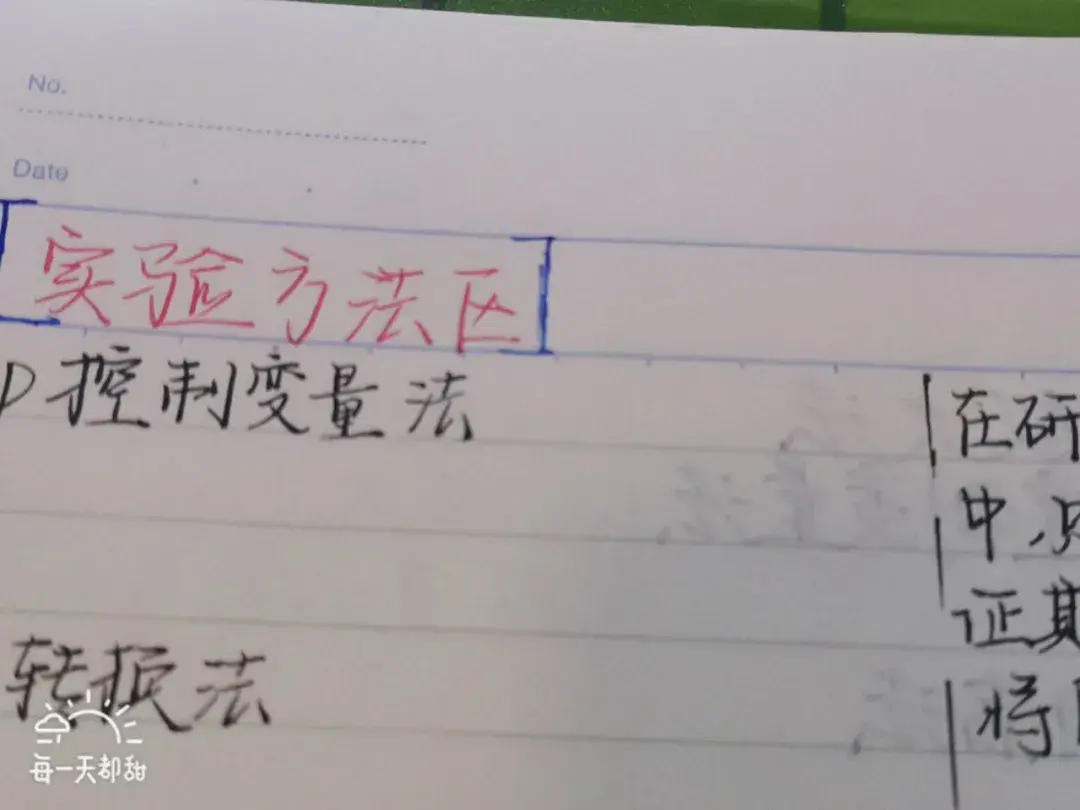 No.
Date
实验方法区
控制变量法
在研
中,只
证其
转换法
将
每一天都甜